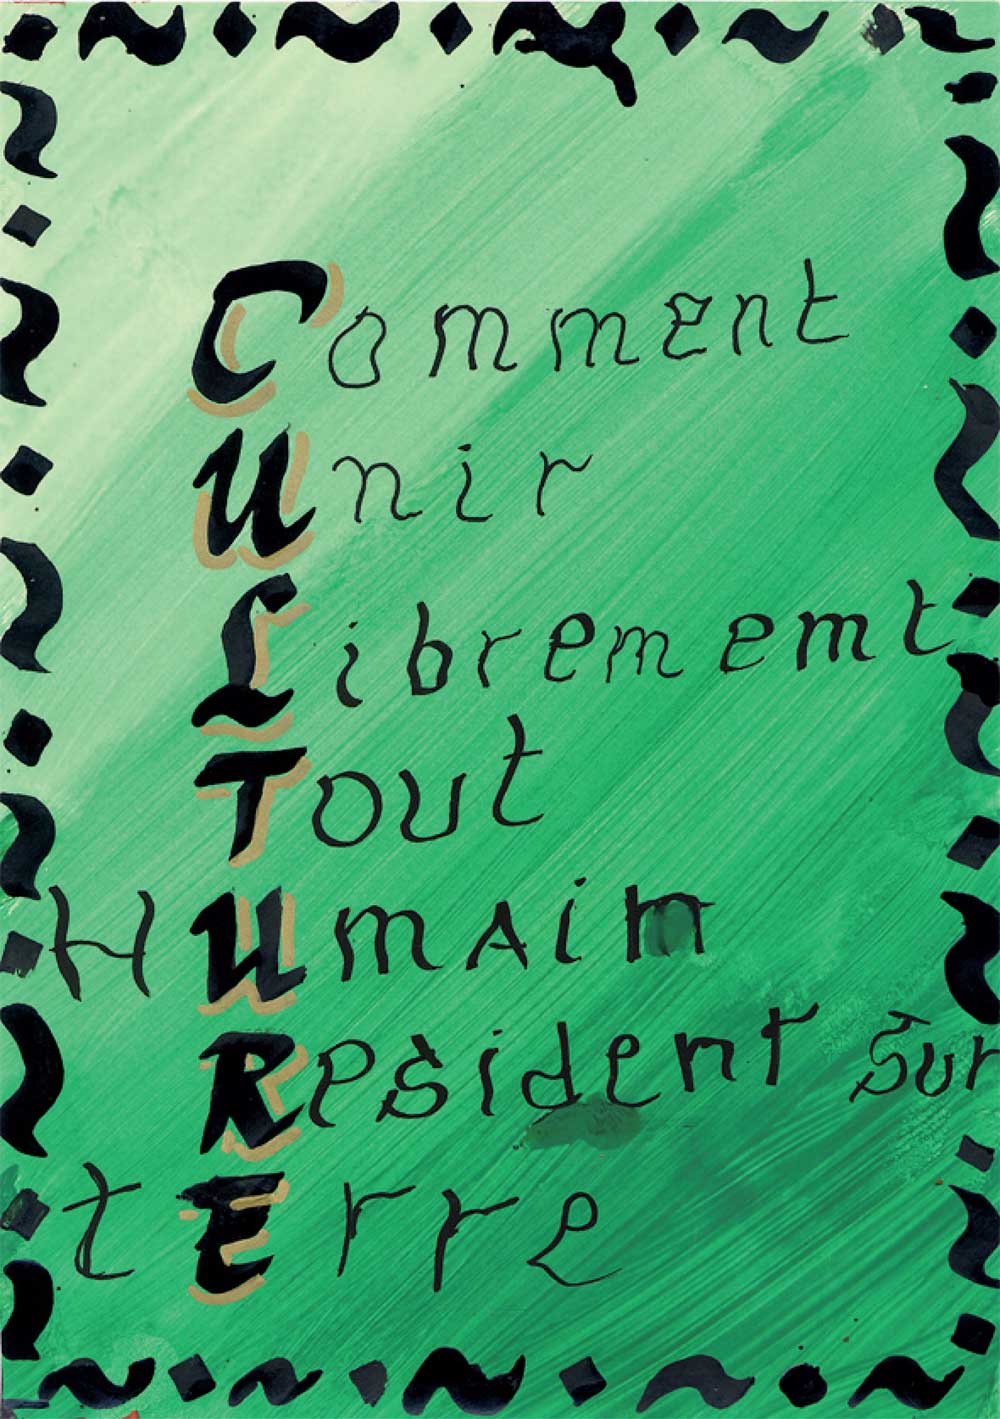 Comment
Unir
Librememt
Tout
HUmAin
Resident Sur
tErre